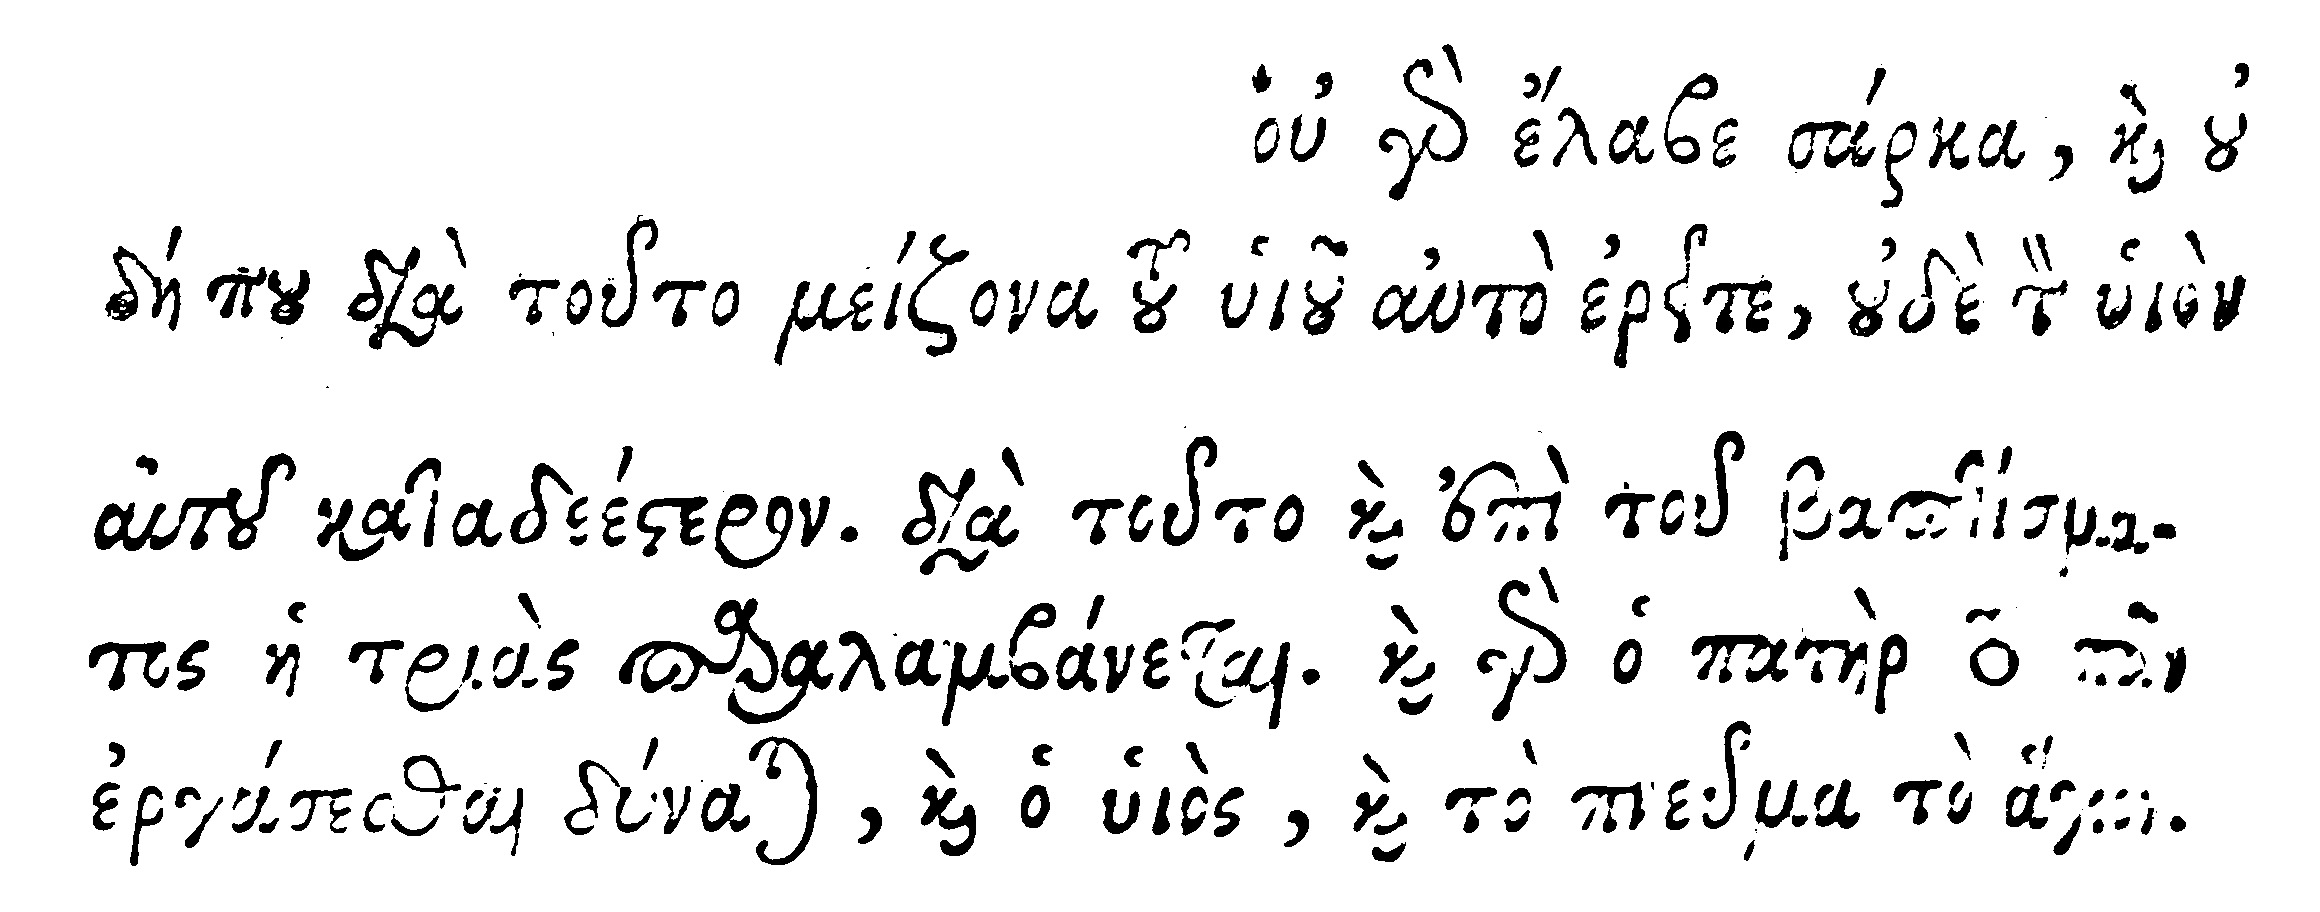 οὐ γὰρ ἔλαβε σάρκα, καὶ οὐ
δήπου διὰ τοῦτο μείζονα τοῦ υἱοῦ αὐτὸ ἐρεῖτε, οὐδὲ τὸν υἱὸν
αὐτοῦ καταδεέστερον. διὰ τοῦτο καὶ ἐπὶ τοῦ βαπτίσμα-
τος ἡ τριὰς παραλαμβάνεται. καὶ γὰρ ὁ πατὴρ τὸ πᾶν
ἐργάσεσθαι δύναται, καὶ ὁ υἱὸς, καὶ τὸ πνεῦμα τὸ ἅγιον.